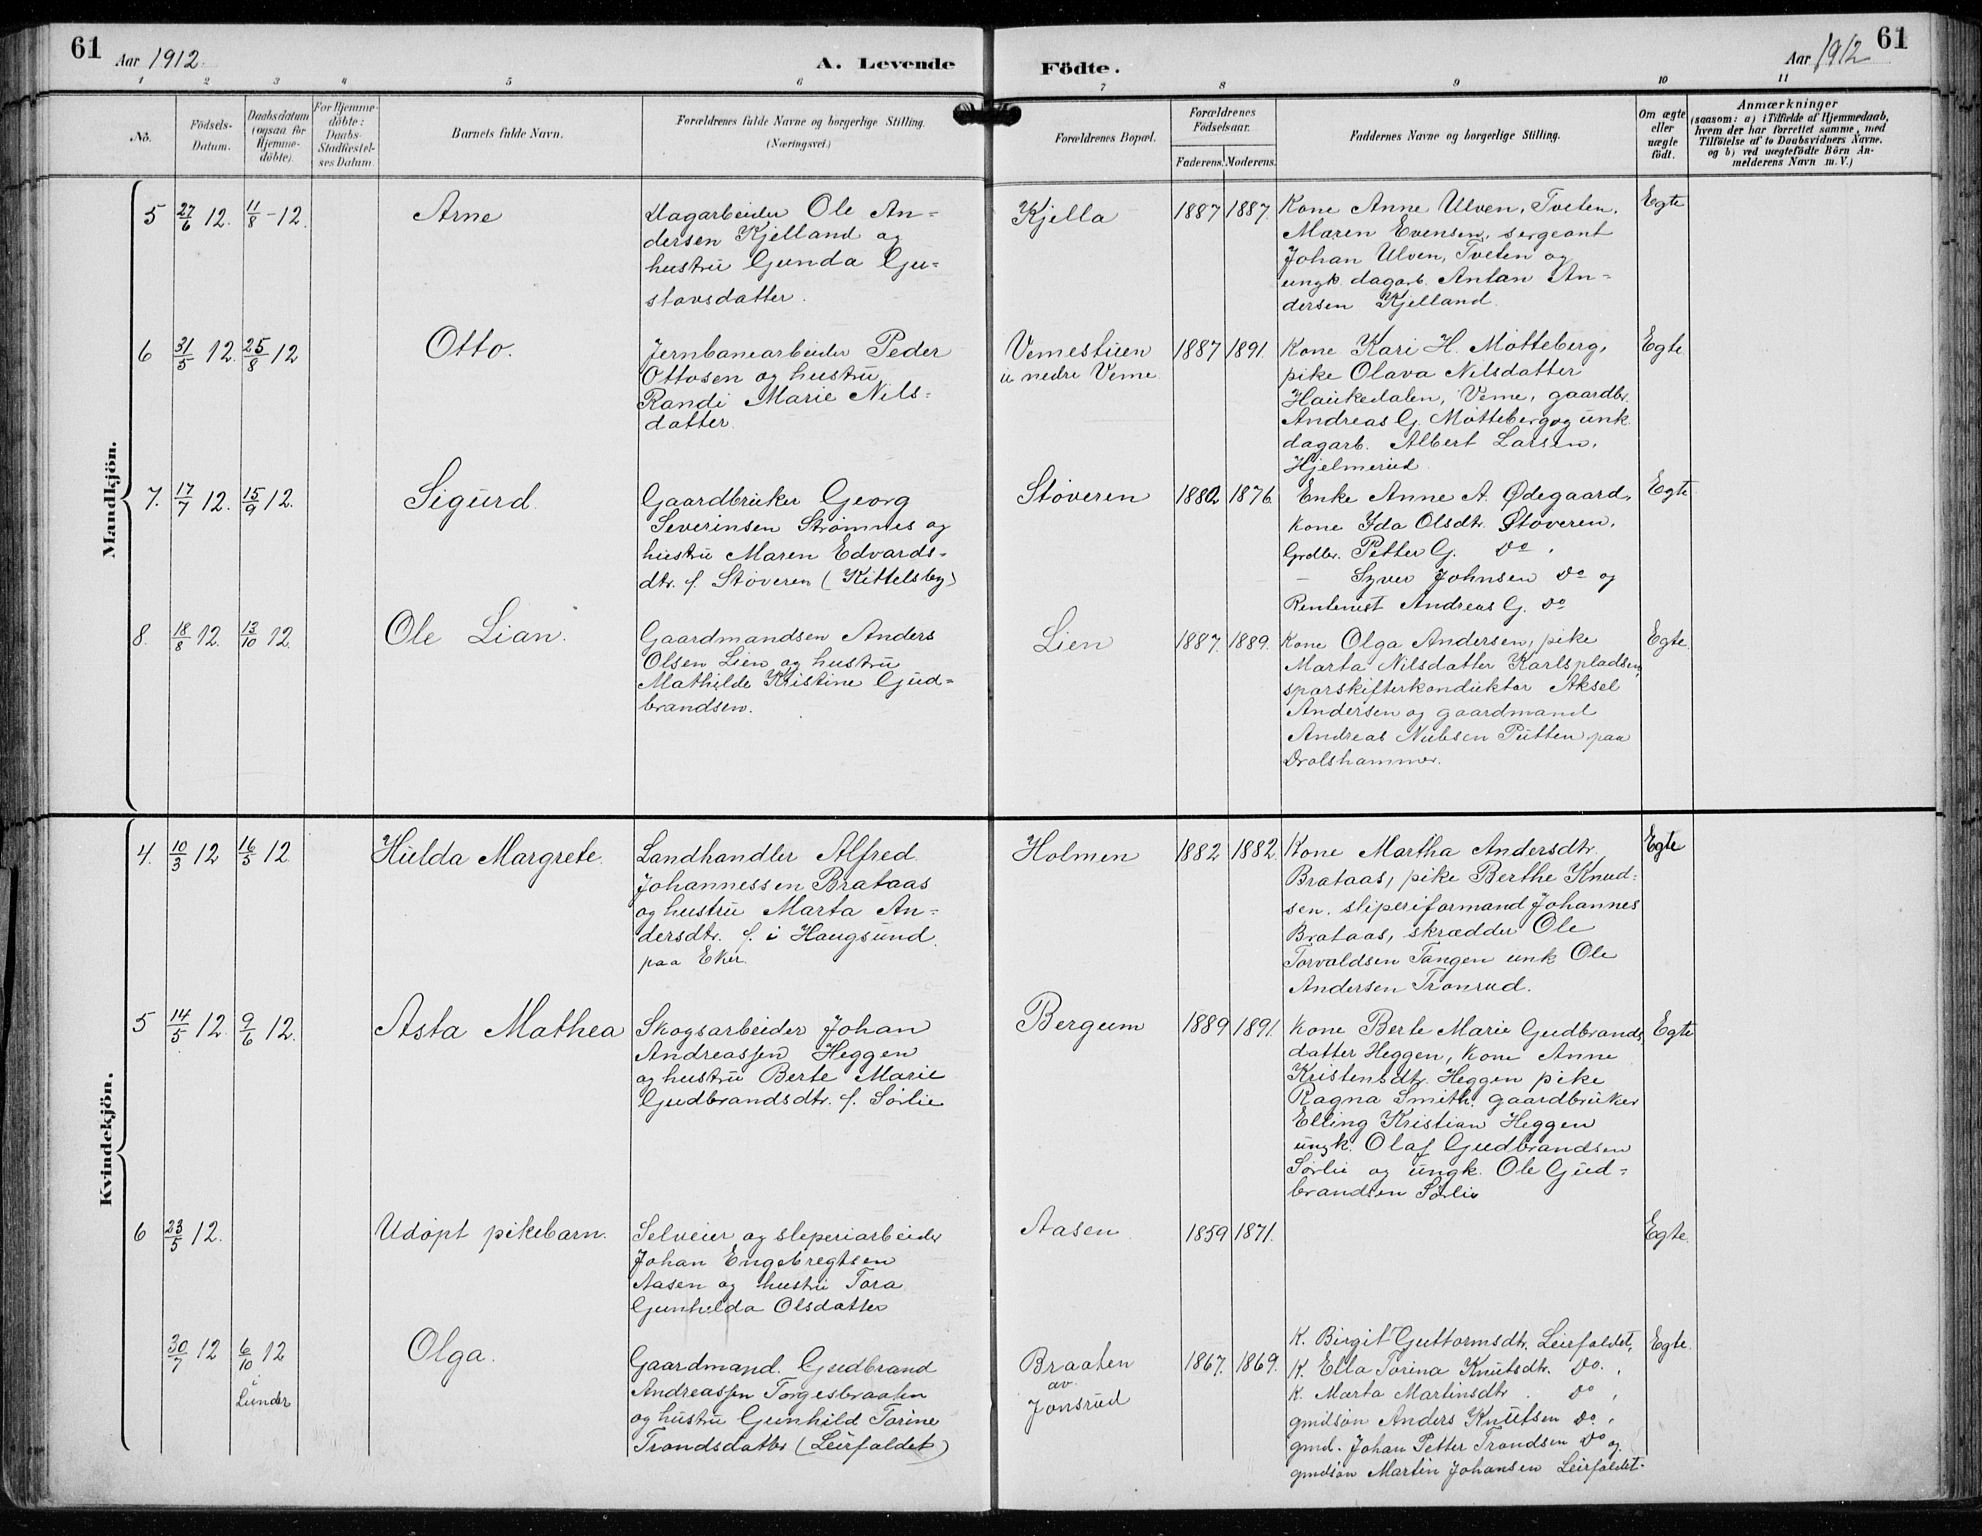 61 Aar 1912. A. Levende Födte. Aar 1912 61
1 2 3 4 5 6 7 8 9 10 11
No. Födsels-Datum. Daabsdatum (ogsaa for Hjemmedöbte). For Hjemmedöbte: Daabs-Stadfæstelses Datum. Barnets fulde Navn. Forældrenes fulde Navne og borgerlige Stilling. (Næringsvei.) Forældrenes Bopæl. Forældrenes Födselsaar. Faderens. Moderens. Faddernes Navne og borgerlige Stilling. Om ægte eller uægte födt. Anmærkninger (saasom: a) i Tilfælde af Hjemmedaab, hvem der har forrettet samme, med Tilföielse af to Daabsvidners Navne, og b) ved uægtefödte Börn Anmelderens Navn m. V.)
Mandkjön.
5 27/6 12. 11/8 - 12. Arne
Dagarbeider Ole An-
dersen Kjelland og
hustru Gunda Gu-
stavsdatter.
Kjella 1887 1887
Kone Anne Ulven, Tveten,
Maren Evensen, sergeant
Johan Ulven, Tveten og
ungk. dagarb. Antan An-
dersen Kjelland.
Egte
6 31/5 12. 25/8 12 Otto.
Jernbanearbeider Peder
Ottosen og hustru
Randi Marie Nils-
datter.
Vemestuen
u. nedre Veme
1887 1891.
Kone Kari H. Møtteberg,
pike Olava Nilsdatter
Haukedalen, Veme, gaardbr.
Andreas G. Møtteberg og unk.
dagarb. Albert Larsen,
Hjelmerud.
Egte.
7. 17/7 12. 15/9 12. Sigurd.
Gaardbruker Georg
Severinsen Strømnes og
hustru Maren Edvards-
dtr. f. Støveren (Kittelsby)
Støveren 1882 1876
Enke Anne A. Ødegaard,
Kone Ida Olsdtr. Støveren,
Grdbr. Petter G. Do,
— Syver Johnsen Do og
Rentenist Andreas G. Do
Egte
8. 18/8 12. 13/10 12. Ole Lian.
Gaardmandsen Anders
Olsen Lien og hustru
Mathilde Kristine Gud-
brandsen.
Lien 1887. 1889.
Kone Olga Andersen, pike
Marta Nilsdatter Karlspladsen,
sporskifterkonduktør Aksel
Andersen og gaardmand
Andreas Nielsen Putten paa
Drolshammer.
Egte
Kvindekjön.
4. 10/3 12 16/5 12 Hulda Margrete.
Landhandler Alfred
Johannessen Brataas
og hustru Marta An-
dersdtr. f. i Haugsund
paa Eker.
Holmen 1882 1882.
Kone Martha Andersdtr.
Brataas, pike Berthe Knud-
sen. sliperiformand Johannes
Brataas, skrædder Ole
Torvaldsen Tangen unk Ole
Andersen Tronrud.
Egte
5 14/5 12. 9/6 12. Asta Mathea
Skogsarbeider Johan
Andreassen Heggen
og hustru Berte Marie
Gudbrandsdtr. f. Sørlie
Bergum 1889 1891.
Kone Berte Marie Gudbrands-
datter Heggen, Kone Anne
Kristensdtr. Heggen pike
Ragna Smith. gaardbruker
Elling Kristian Heggen
ungk. Olaf Gudbrandsen
Sørlie og ungk. Ole Gud-
brandsen Sørlie
Egte
6 23/5 12. Udøpt pikebarn.
Selveier og sleperiarbeider
Johan Engebregtsen
Aasen og hustru Tora
Gunhilda Olsdatter
Aasen 1859 1871.
Egte.
30/7 12 6/10 12
i Lunder
Olga.
Gaardmand. Gudbrand
Andreassen Torgesbraaten
og hustru Gunhild Torine
Trondsdatter (Leirfaldet)
Braaten
av
Jonsrud
1867. 1869.
K. Birgit Guttormsdtr. Leirfaldet,
K. Ella Torina Knutsdtr. Do.,
K. Marta Martinsdtr. Do,
gmdsøn Anders Knutsen Do.,
gmd. Johan Petter Trondsen Do og
gmdsøn Martin Johansen Leirfaldet.
Egte.